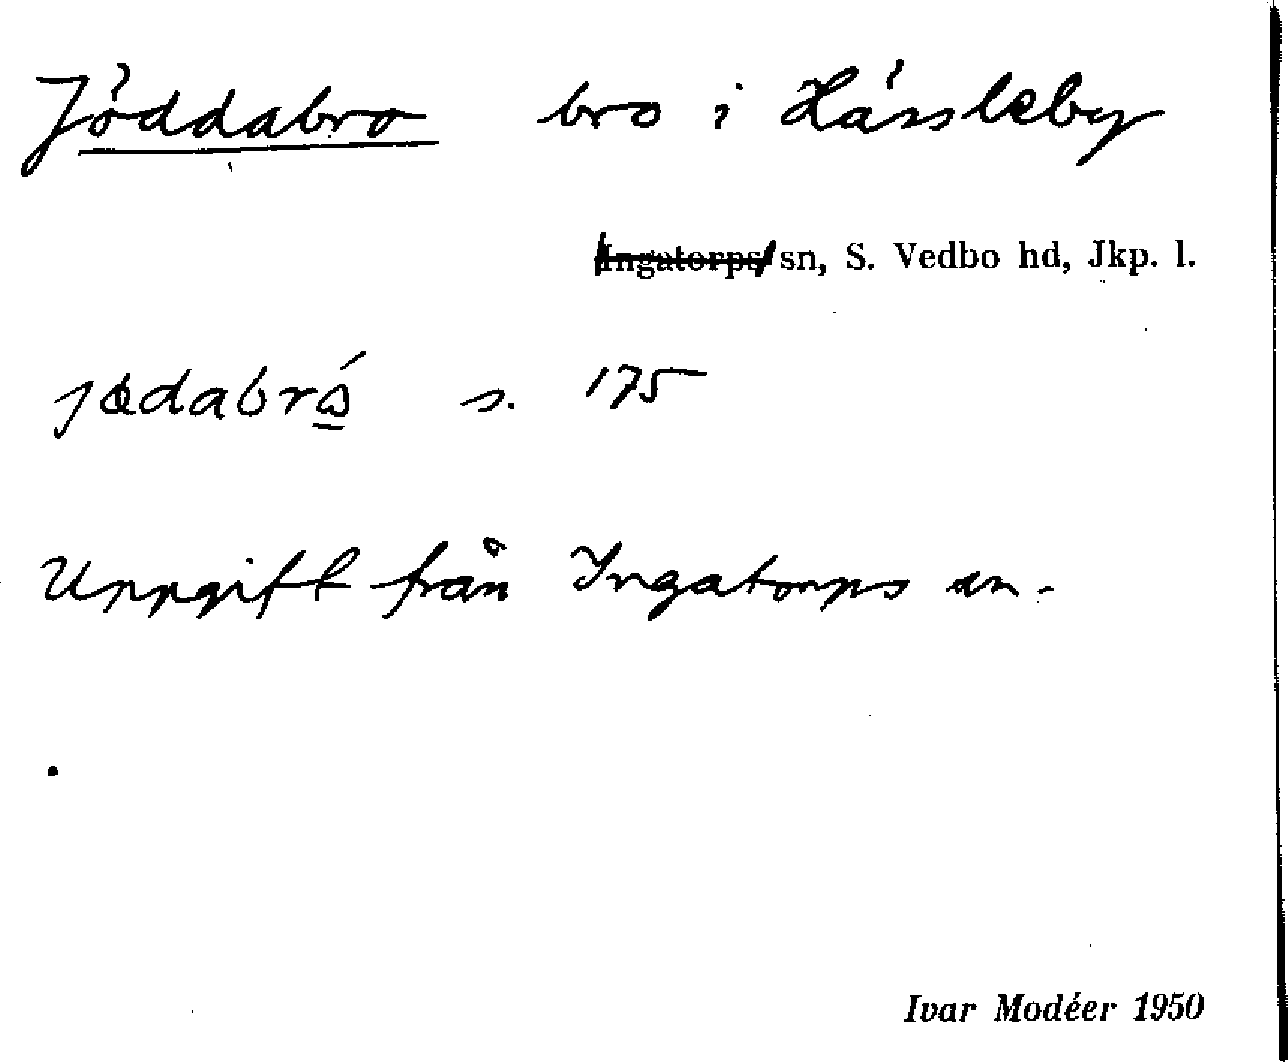 Jöddabro bro i Hässleby
Ingatorps sn, S. Vedbo hd, Jkp. l.
s. 175
Uppgift från Ingatorps sn.
Ivar Modéer 1950